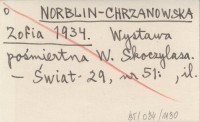 o NORBLIN-CHRZANOWSKA
Zofia 1934. Wystawa
pośmiertna W. Skoczylasa.
— Świat 29, nr 51: , il.
85/084/1130